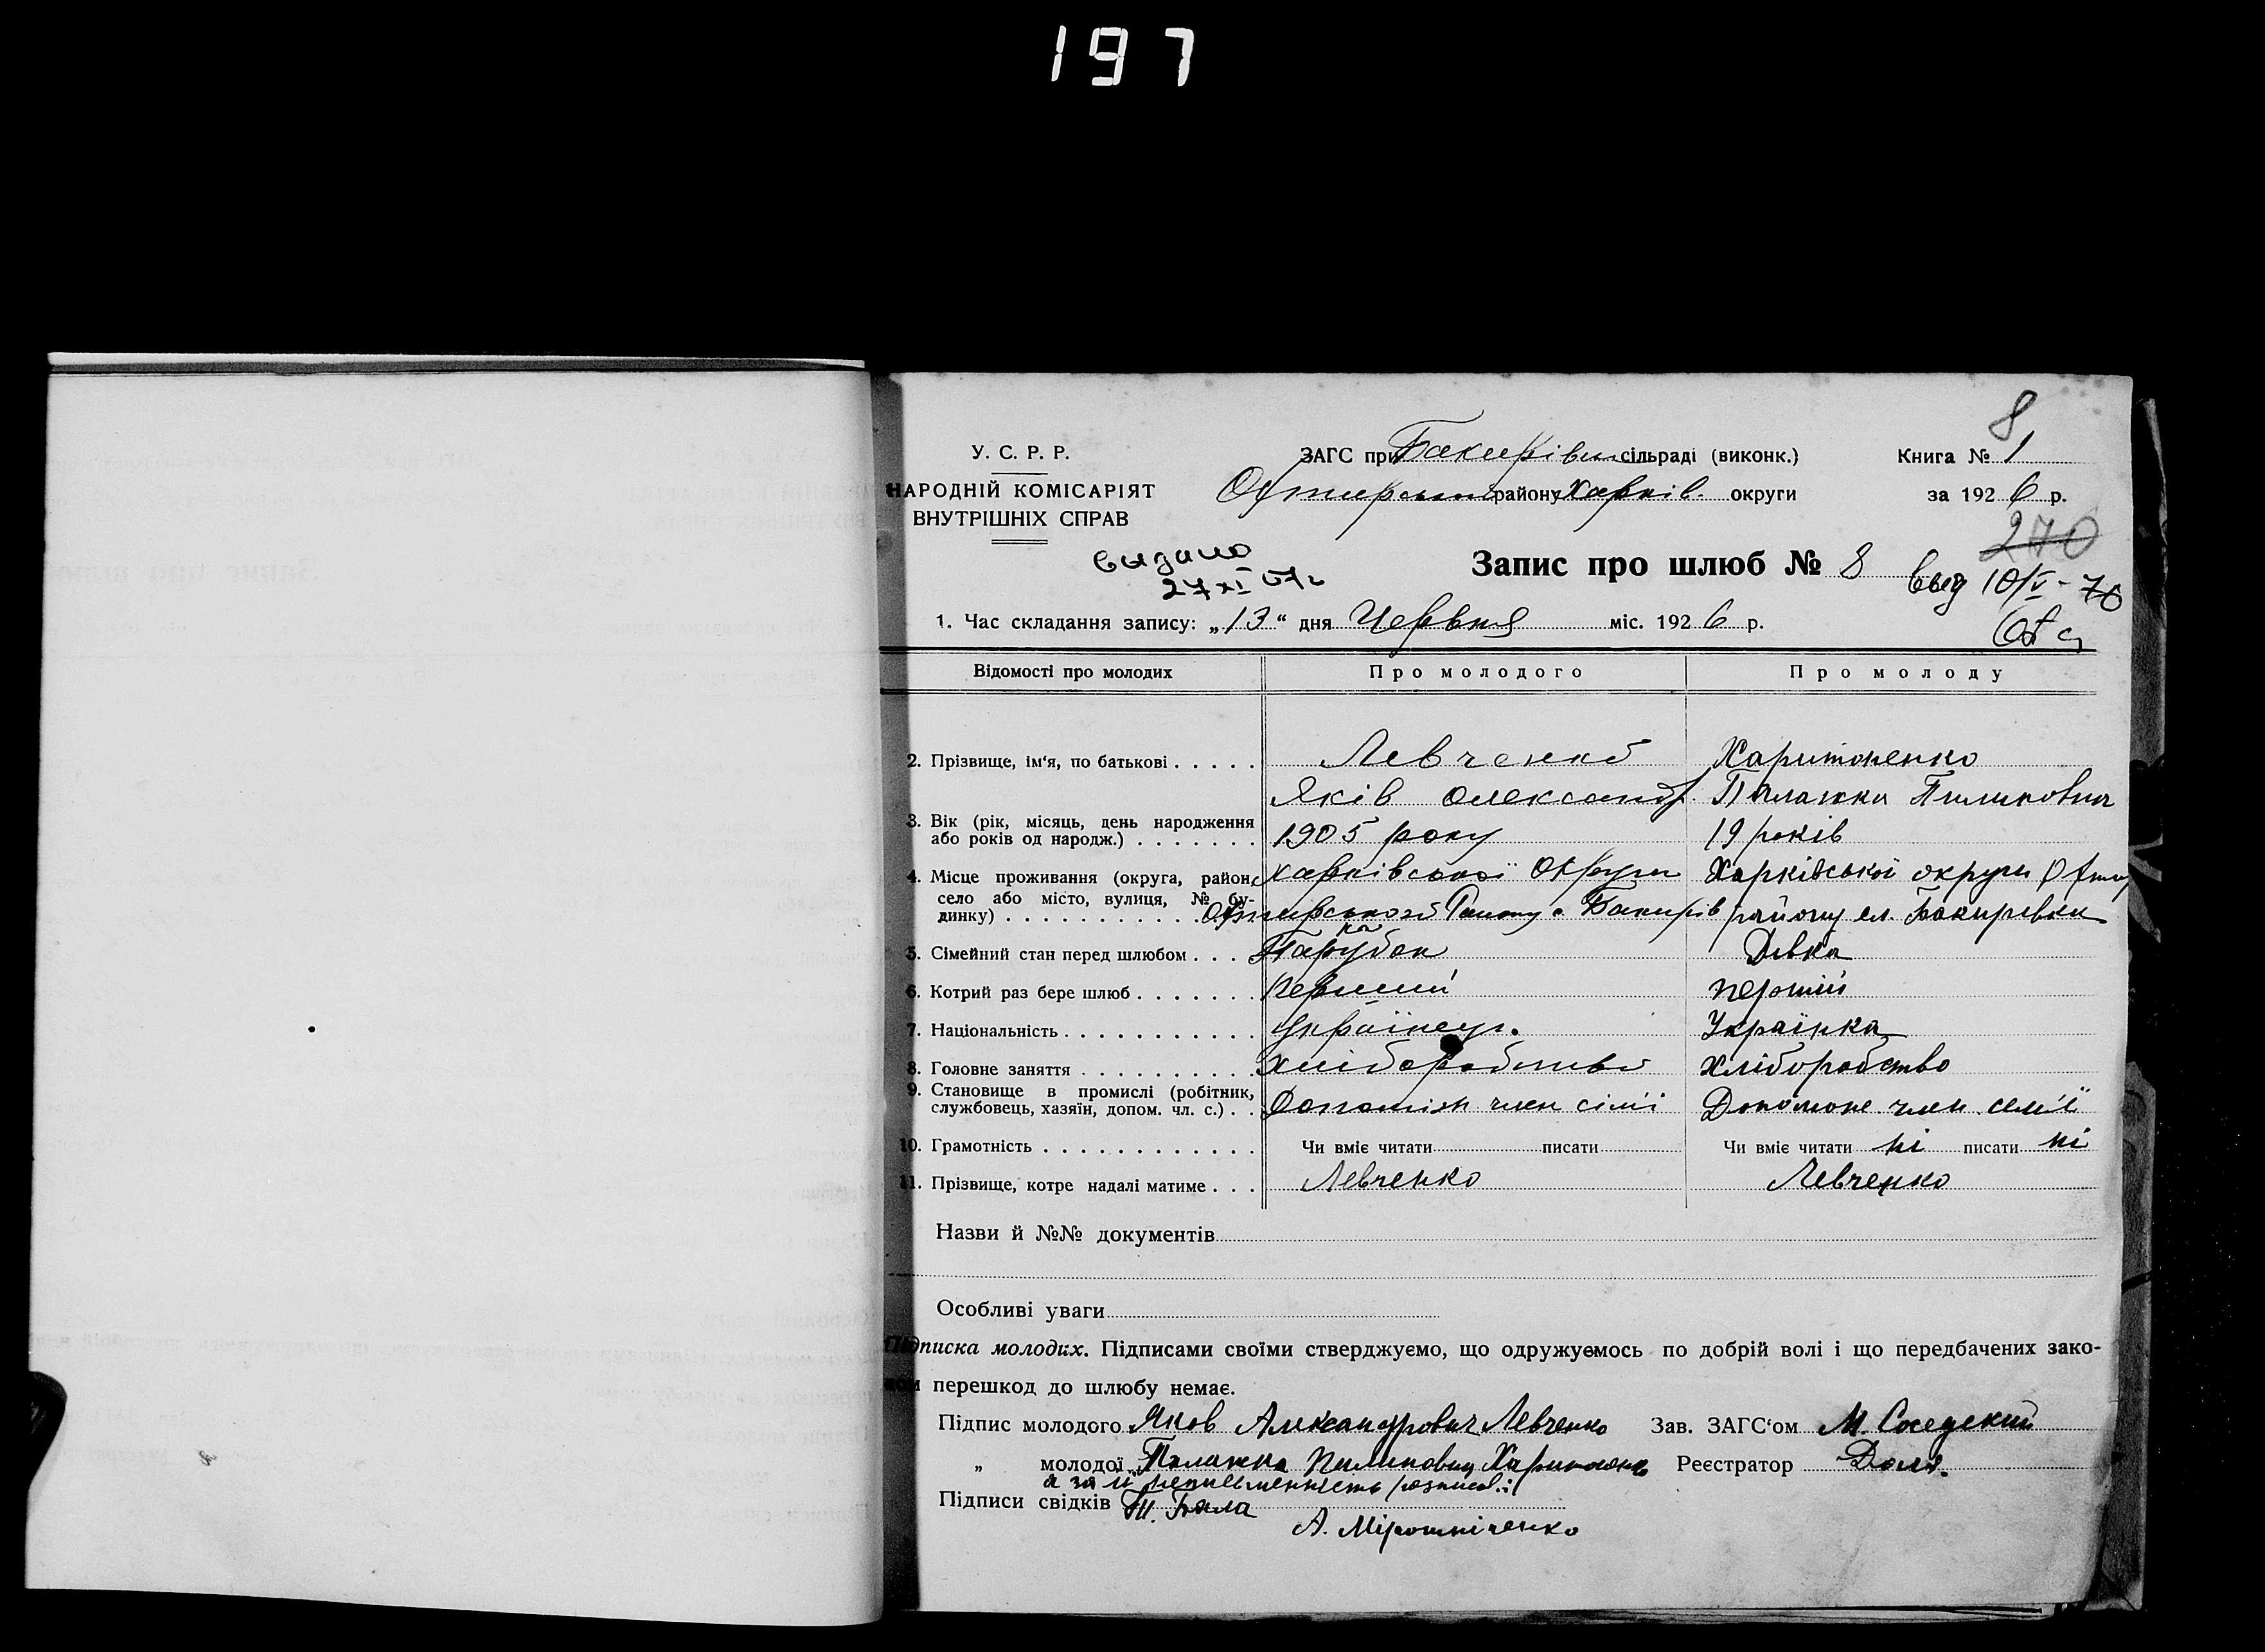 197
8
У. С. Р. Р.
НАРОДНІЙ КОМІСАРІЯТ
ВНУТРІШНІХ СПРАВ
ЗАГС при Бакирівськ. сільраді (виконк.)
Охтирськ. району Харків. округи
Книга № 1
за 1926 р.
270
выдано
27 XI 67г
Запис про шлюб № 8
выд 10/V-70
1. Час складання запису: „13“ дня Червня міс. 1926 р.
Відомості про молодих Про молодого Про молоду
2. Прізвище, ім‘я, по батькові . . . . . Левченко Харитоненко
Яків Олександр. Палажка Пилиповна
3. Вік (рік, місяць, день народження
або років од народж.) . . . . . . . 1905 року 19 років
4. Місце проживання (округа, район, Харківської Округи Харківської округи Охтир
село або місто, вулиця, № бу-
динку) . . . . . . . . . . . Охтирського Району с Бакирів району сл. Бакирівки
ка
5. Сімейний стан перед шлюбом . . . Парубок Дівка
6. Котрий раз бере шлюб . . . . . . . Перший перший
7. Національність . . . . . . . . . . . Українець. Українка
8. Головне заняття . . . . . . . . . . Хліборобство хліборобство
9. Становище в промислі (робітник,
службовець, хазяїн, допом. чл. с.) . . Допоміж член сім'ї Допоможе член семї
10. Грамотність . . . . . . . . . . . . Чи вміє читати писати Чи вміє читати ні писати ні
11. Прізвище, котре надалі матиме . . . Левченко Левченко
Назви й №№ документів
Особливі уваги
Підписка молодих. Підписами своїми стверджуємо, що одружуємось по добрій волі і що передбачених зако-
ном перешкод до шлюбу немає.
Підпис молодого Яков Александрович Левченко Зав. ЗАГС‘ом М. Соседский
„ молодої Палажка Пилиповна Харитоненк Реєстратор Доля.
а за її неписьменність розписал.:
Підписи свідків
А. Мірошніченко